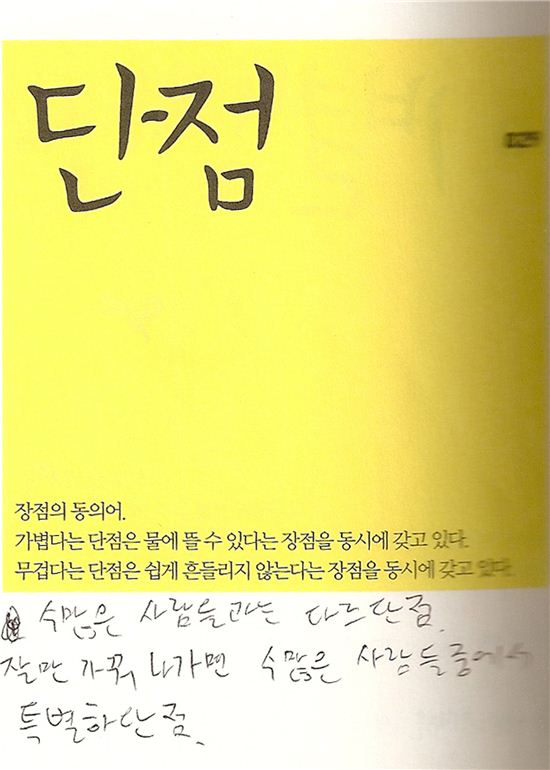 단점
장점의 동의어.
가볍다는 단점은 물에 뜰 수 있다는 장점을 동시에 갖고 있다.
무겁다는 단점은 쉽게 흔들리지 않는다는 장점을 동시에 갖고 있다.
수많은 사람들과는 다른 단점.
잘만 가꿔 나가면 수많은 사람들 중에서
특별한 단점.